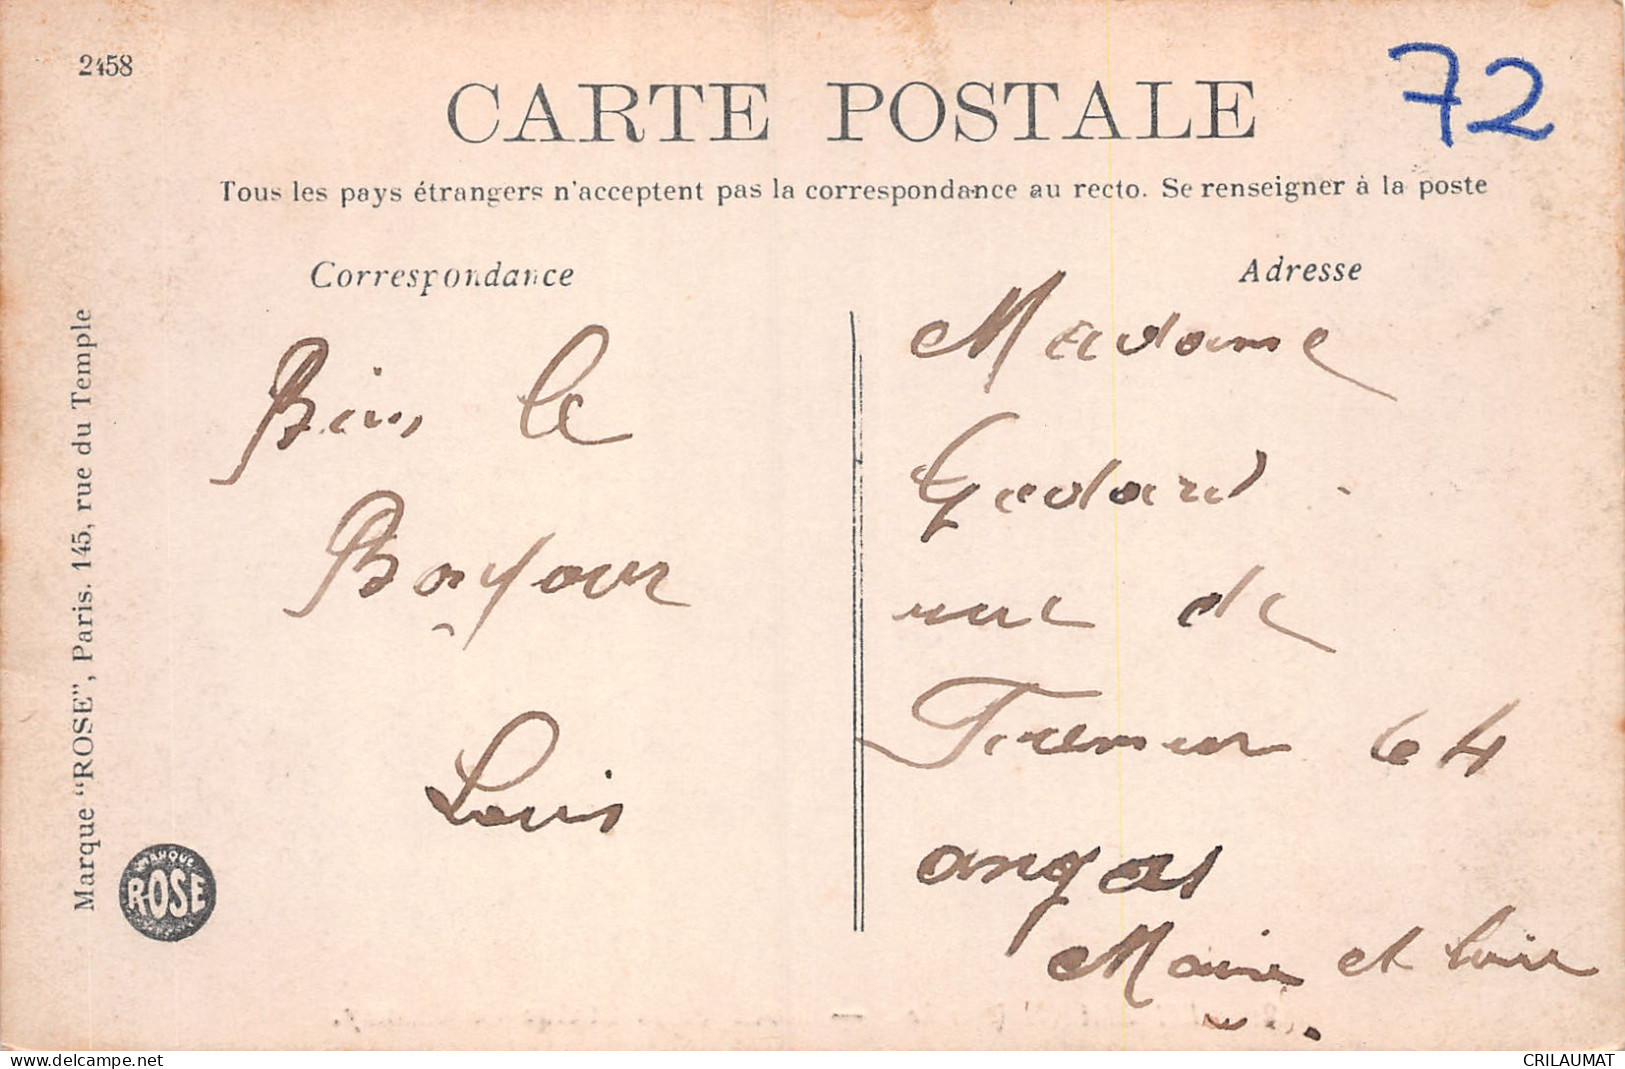 2458
72
CARTE POSTALE
Tous les pays étrangers n'acceptent pas la correspondance au recto. Se renseigner à la poste
Correspondance
Bien le
Bonjour
Louis
Adresse
Madame
Godard
rue de
64
angers
Maine et Loire
Marque "ROSE", Paris. 145, rue du Temple
MARQUE
ROSE
www.delcampe.net
CRILAUMAT